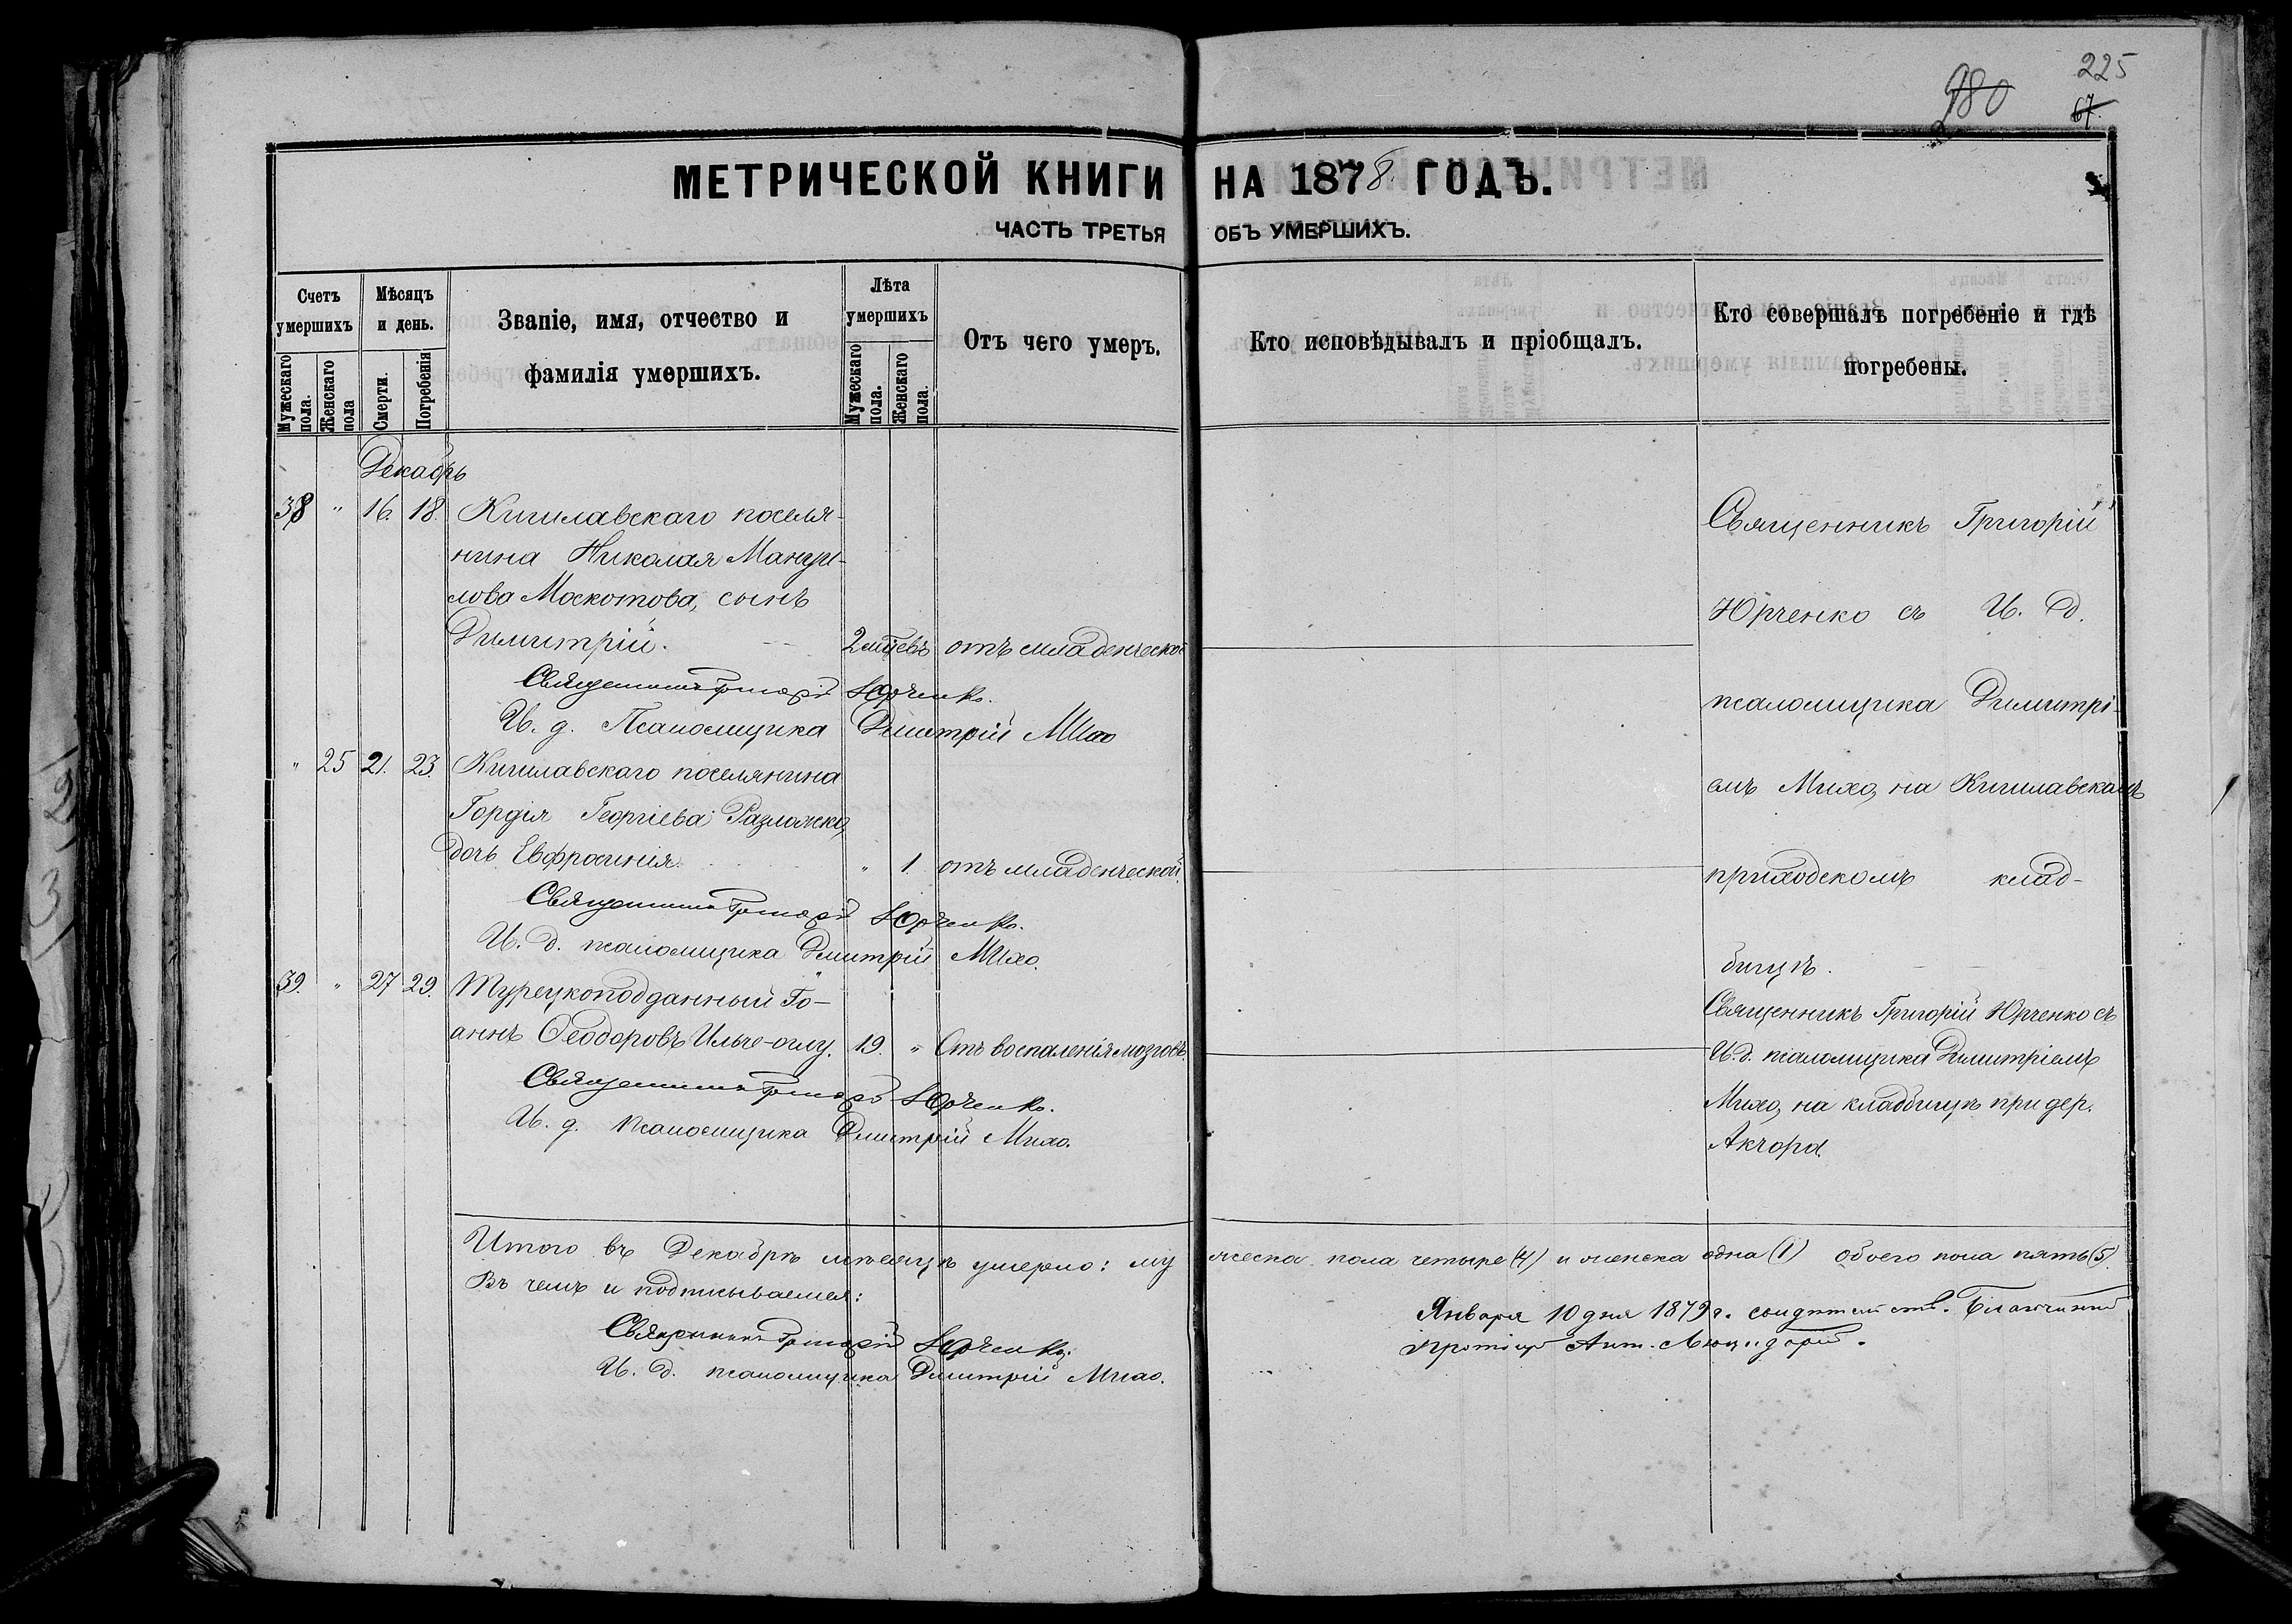 980
225
67.
МЕТРИЧЕСКОЙ КНИГИ НА 1878 ГОДЪ.
ЧАСТЬ ТРЕТЬЯ ОБЪ УМЕРШИХЪ.
Счетъ умершихъ
Мужескаго пола.
Женскаго пола
Мѣсяцъ и день.
Смерти.
Погребенія
Званіе, имя, отчество и
фамилія умершихъ.
Лѣта умершихъ
Мужескаго пола.
Женскаго пола.
Отъ чего умеръ.
Кто исповѣдывалъ и пріобщалъ.
Кто совершалъ погребеніе и гдѣ
погребены.
Декабрь
38 " 16. 18. Кигилавскаго поселя-
нина Николая Мануи-
лова Москотова, сынъ
Димитрій. 2 мѣс отъ младенческой
Священникъ Григорій Юрченко.
И. д. Псаломщика Димитрій Михо
" 25 21. 23. Кигилавскаго поселянина
Гордія Георгіева Разложка,
дочь Евфросинія. " 1 отъ младенческой.
Священникъ Григорій Юрченко.
И. д. псаломщика Димитрій Михо.
39. " 27 29. Турецкоподданный Іо-
аннъ Ѳеодоровъ Ильче-оглу. 19. " Отъ воспаленія мозговъ.
Священникъ Григорій Юрченко.
И. д. псаломщика Димитрій Михо.
Священникъ Григорій
Юрченко съ И. д.
псаломщика Димитрі-
емъ Михо, на Кигилавскомъ
приходскомъ клад-
бищѣ.
Священникъ Григорій Юрченко съ
И. д. псаломщика Димитріемъ
Михо, на кладбищѣ при дер.
Акчора.
Итого въ Декабрѣ мѣсяцѣ умерло: мужеска пола четыре (4) и женска одна (1) обоего пола пять (5).
Въ чемъ и подписываемся:
Священникъ Григорій Юрченко.
И. д. псаломщика Димитрій Михо.
Января 10 дня 1879 г. Благочинный
Ант.